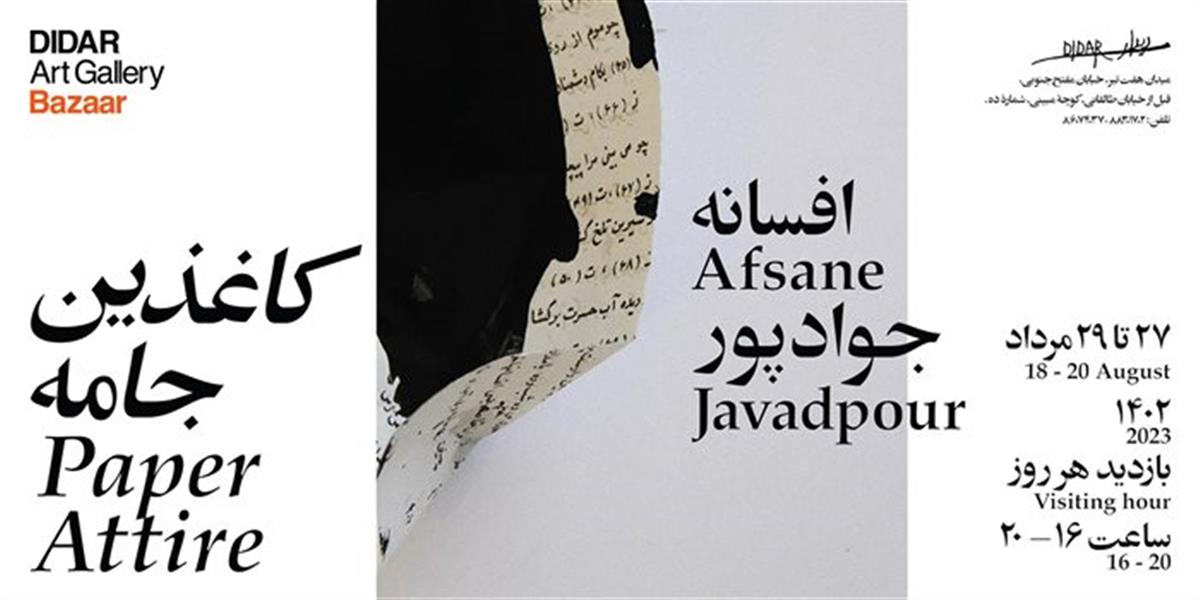 DIDAR
Art Gallery
Bazaar
کاغذین
جامه
Paper
Attire
چو موم از روی
(۶۵) بکام دشمنا
چو می بینی مرا پیچ
شیرین تلخ
دیده آب حسرت برگشا
افسانه
Afsane
جوادپور
Javadpour
DIDAR دیدار
میدان هفت تیر، خیابان مفتح جنوبی،
قبل از خیابان طالقانی، کوچۀ مبینی، شمارۀ ده.
تلفن:
۲۷ تا ۲۹ مرداد
18 - 20 August
۱۴۰۲
2023
بازدید هر روز
Visiting hour
ساعت ۱۶ – ۲۰
16 - 20